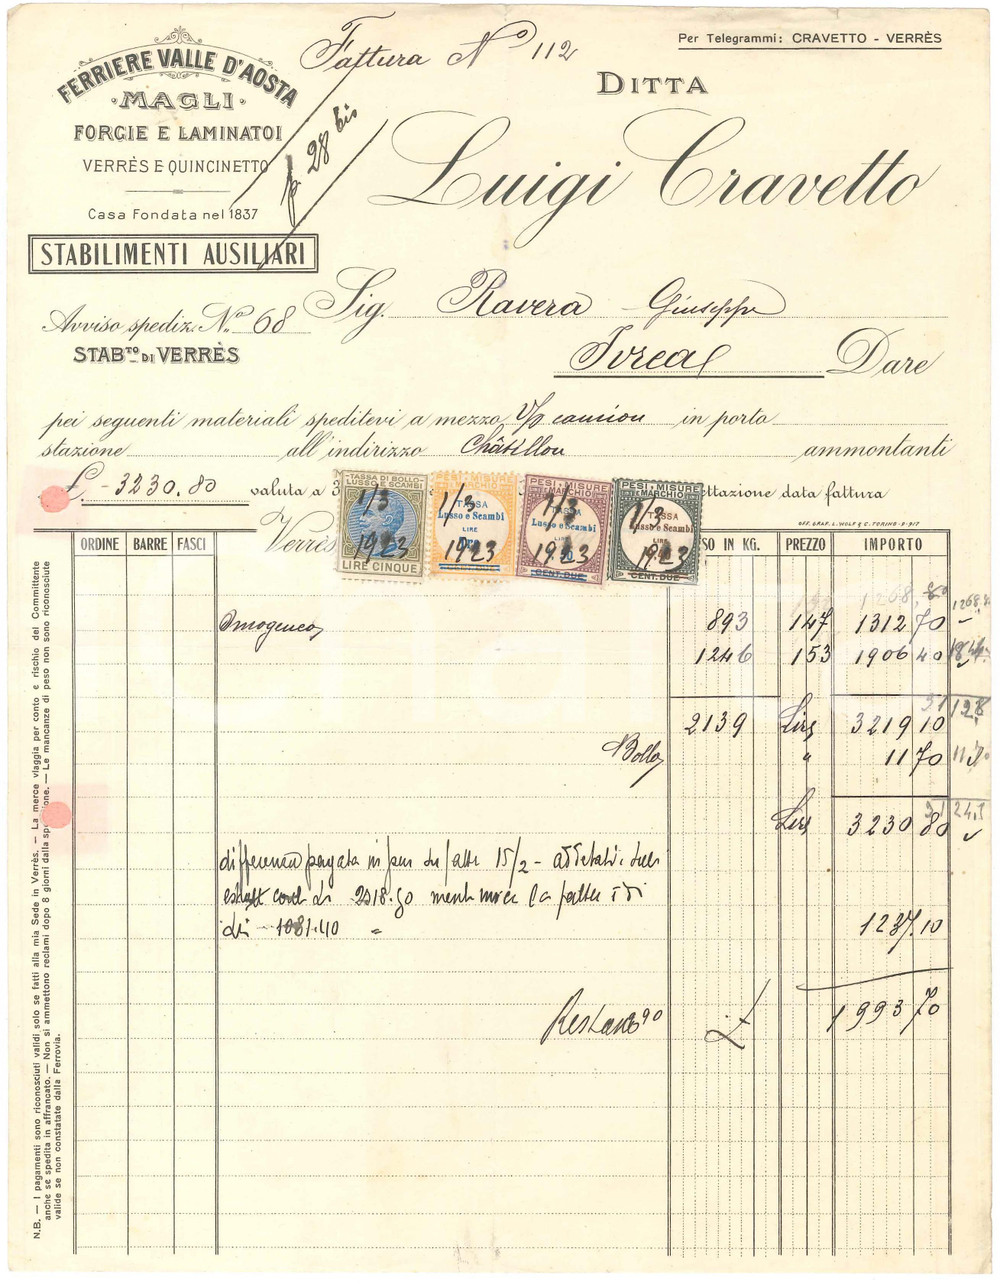 Fattura N° 112
Per Telegrammi: CRAVETTO - VERRÈS
FERRIERE VALLE D'AOSTA
MAGLI
FORGIE E LAMINATOI
VERRÈS E QUINCINETTO
Casa Fondata nel 1837
STABILIMENTI AUSILIARI
28 bis
DITTA
Luigi Cravetto
Avviso spediz. N.° 68
STAB.TO DI VERRÈS
Sig. Ravera Giuseppe
Ivrea Dare
pei seguenti materiali speditevi a mezzo camion in porto
stazione all'indirizzo Châtillon ammontanti
£. - 3230.80 valuta a 3 ettazione data fattura
TASSA DI BOLLO
LUSSO E SCAMBI
1/3
1923
LIRE CINQUE
1/3
TASSA
Lusso e Scambi
LIRE
1923
PESI E MISURE
E MARCHIO
1/3
TASSA
Lusso e Scambi
1923
CENT. DUE
PESI E MISURE
E MARCHIO
1/3
TASSA
Lusso e Scambi
LIRE
1923
CENT. DUE
Verrès
OFF. GRAF. L. WOLF & C. TORINO-9-917
ORDINE BARRE FASCI SO IN KG. PREZZO IMPORTO
1268
Omogeneo 893 147 1312 70
1246 153 1906 40
2139 Lire 3219 10
Bollo " 11 70
Lire 3230 80
differenza pagata in più su fatt. 15/2 -
2318.50
di 1081.40 " 1237.10
Restano £ 1993 70
N.B. — I pagamenti sono riconosciuti validi solo se fatti alla mia Sede in Verrès. — La merce viaggia per conto e rischio del Committente
anche se spedita in affrancato. — Non si ammettono reclami dopo 8 giorni dalla spedizione. — Le mancanze di peso non sono riconosciute
valide se non constatate dalla Ferrovia.